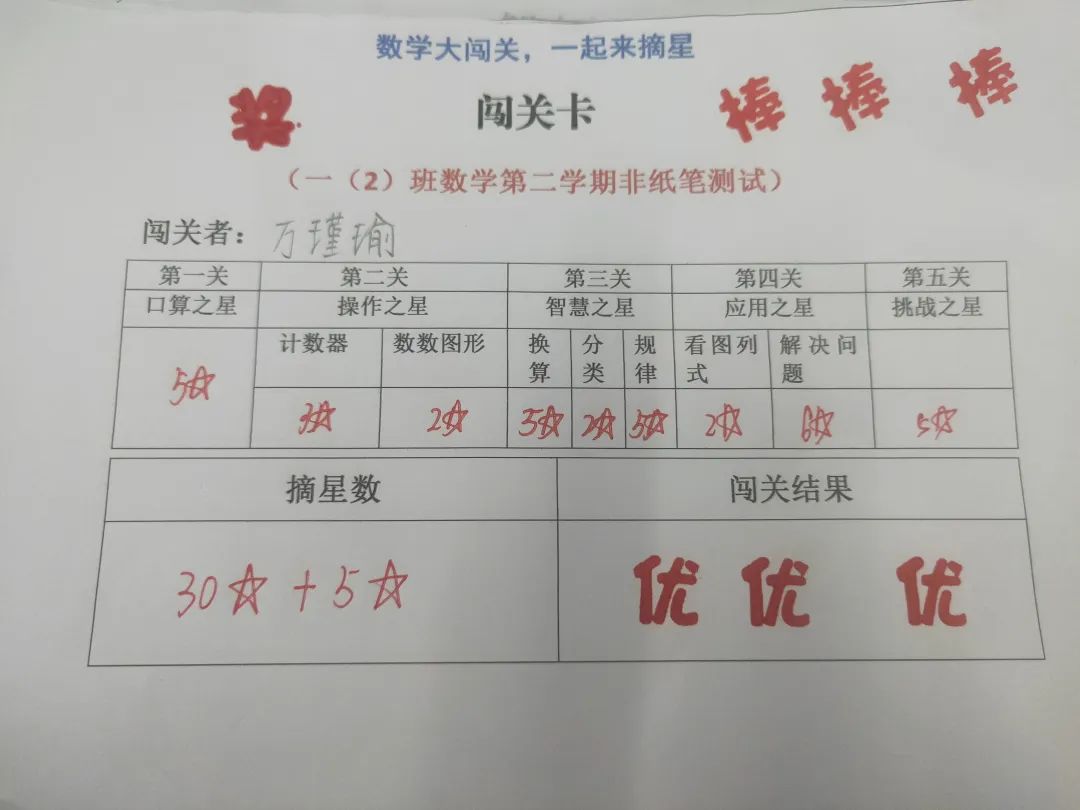 数学大闯关，一起来摘星
奖 闯关卡 棒 棒 棒
（一（2）班数学第二学期非纸笔测试）
闯关者：万瑾瑜
第一关 第二关 第三关 第四关 第五关
口算之星 操作之星 智慧之星 应用之星 挑战之星
计数器 数数图形 换算 分类 规律 看图列式 解决问题
5☆ 3☆ 2☆ 5☆ 2☆ 5☆ 2☆ 6☆ 5☆
摘星数 闯关结果
30☆+5☆ 优 优 优